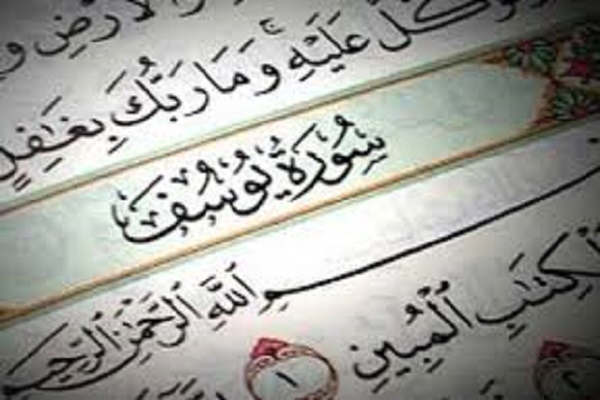 الأرض و
وكل عليه وما ربك بغفل
سُورَةُ يُوسُف
بسم الله الرحمن الرحيم
الكتب المبين ١